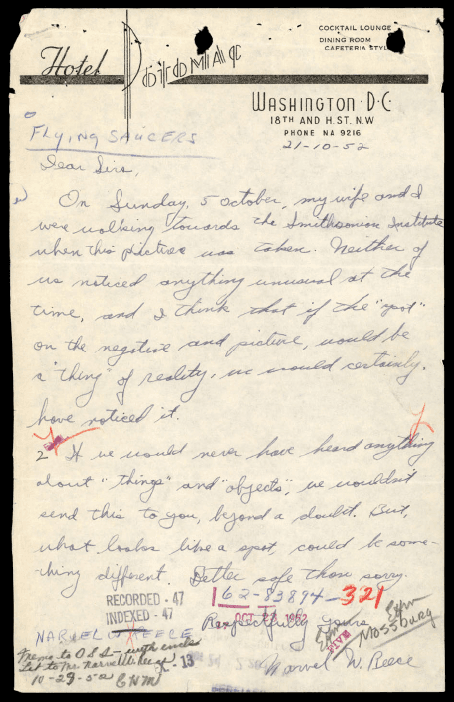 Hotel Potomac
COCKTAIL LOUNGE
DINING ROOM
CAFETERIA STYLE
WASHINGTON D·C·
18TH AND H. ST. N.W
PHONE NA 9216
21-10-52
FLYING SAUCERS
Dear Sirs,
On Sunday, 5 october, my wife and I
were walking towards the Smithsonian Institute
when this picture was taken. Neither of
us noticed anything unusual at the
time, and I think that if the "spot"
on the negative and picture, would be
a "thing" of reality, we would certainly
have noticed it.
2 If we would never have heard anything
about "things" and "objects", we wouldn't
send this to you, beyond a doubt. But,
what looks like a spot, could be some-
thing different. Better safe than sorry.
162-83894-321
RECORDED - 47
INDEXED - 47
OCT 1952
Respectfully yours
Mossburg
FIVE
NARVEL W. REECE
Memo to OSI - with encls
Let to Mr. Narvel W. Reece
10-29-52 EHM
X-13
Narvel W. Reece